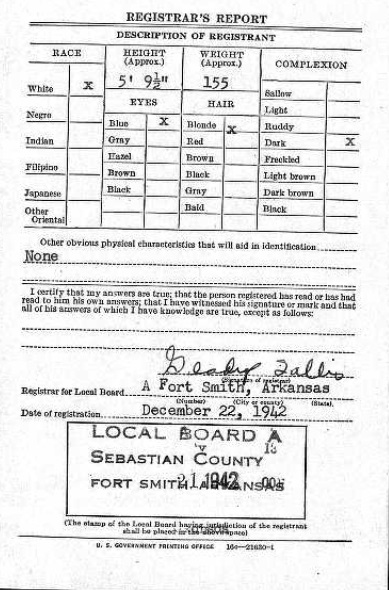 REGISTRAR'S REPORT
DESCRIPTION OF REGISTRANT
RACE
HEIGHT
(Approx.)
WEIGHT
(Approx.)
COMPLEXION
White X
5' 9½"
155
Sallow
EYES
HAIR
Light
Negro
Blue X
Blonde X
Ruddy
Indian
Gray
Red
Dark X
Filipino
Hazel
Brown
Freckled
Brown
Black
Light brown
Japanese
Black
Gray
Dark brown
Other
Oriental
Bald
Black
Other obvious physical characteristics that will aid in identification
None
I certify that my answers are true; that the person registered has read or has had
read to him his own answers; that I have witnessed his signature or mark and that
all of his answers of which I have knowledge are true, except as follows:
(Signature of registrar)
Registrar for Local Board A Fort Smith, Arkansas
(Number) (City or county) (State)
Date of registration December 22, 1942
LOCAL BOARD A
13
SEBASTIAN COUNTY
FORT SMITH, ARKANSAS
21 1942
(The stamp of the Local Board having jurisdiction of the registrant
shall be placed in the above space)
U. S. GOVERNMENT PRINTING OFFICE 16—21630-1